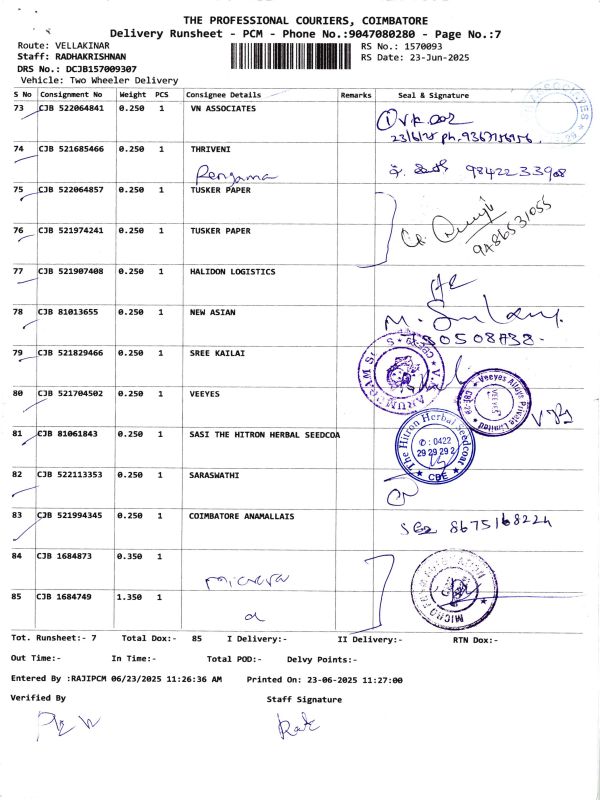 THE PROFESSIONAL COURIERS, COIMBATORE
Delivery Runsheet - PCM - Phone No.:9047080280 - Page No.:7
Route: VELLAKINAR
RS No.: 1570093
Staff: RADHAKRISHNAN
RS Date: 23-Jun-2025
DRS No.: DCJB157009307
Vehicle: Two Wheeler Delivery
S No Consignment No Weight PCS Consignee Details Remarks Seal & Signature
73 CJB 522064841 0.250 1 VN ASSOCIATES
23/6/25 ph.
74 CJB 521685466 0.250 1 THRIVENI
Rengama 98422 33908
75 CJB 522064857 0.250 1 TUSKER PAPER
76 CJB 521974241 0.250 1 TUSKER PAPER
9486531055
77 CJB 521907408 0.250 1 HALIDON LOGISTICS
78 CJB 81013655 0.250 1 NEW ASIAN
79 CJB 521829466 0.250 1 SREE KAILAI
80 CJB 521704502 0.250 1 VEEYES
Veeyes Alloys Private Limited
81 CJB 81061843 0.250 1 SASI THE HITRON HERBAL SEEDCOA
The Hitron Herbal Seedcoat
✆ : 0422
29 29 29 2
★ CBE ★
82 CJB 522113353 0.250 1 SARASWATHI
83 CJB 521994345 0.250 1 COIMBATORE ANAMALLAIS
8675168224
84 CJB 1684873 0.350 1
Micro
85 CJB 1684749 1.350 1
Tot. Runsheet:- 7 Total Dox:- 85 I Delivery:- II Delivery:- RTN Dox:-
Out Time:- In Time:- Total POD:- Delvy Points:-
Entered By :RAJIPCM 06/23/2025 11:26:36 AM Printed On: 23-06-2025 11:27:00
Verified By Staff Signature